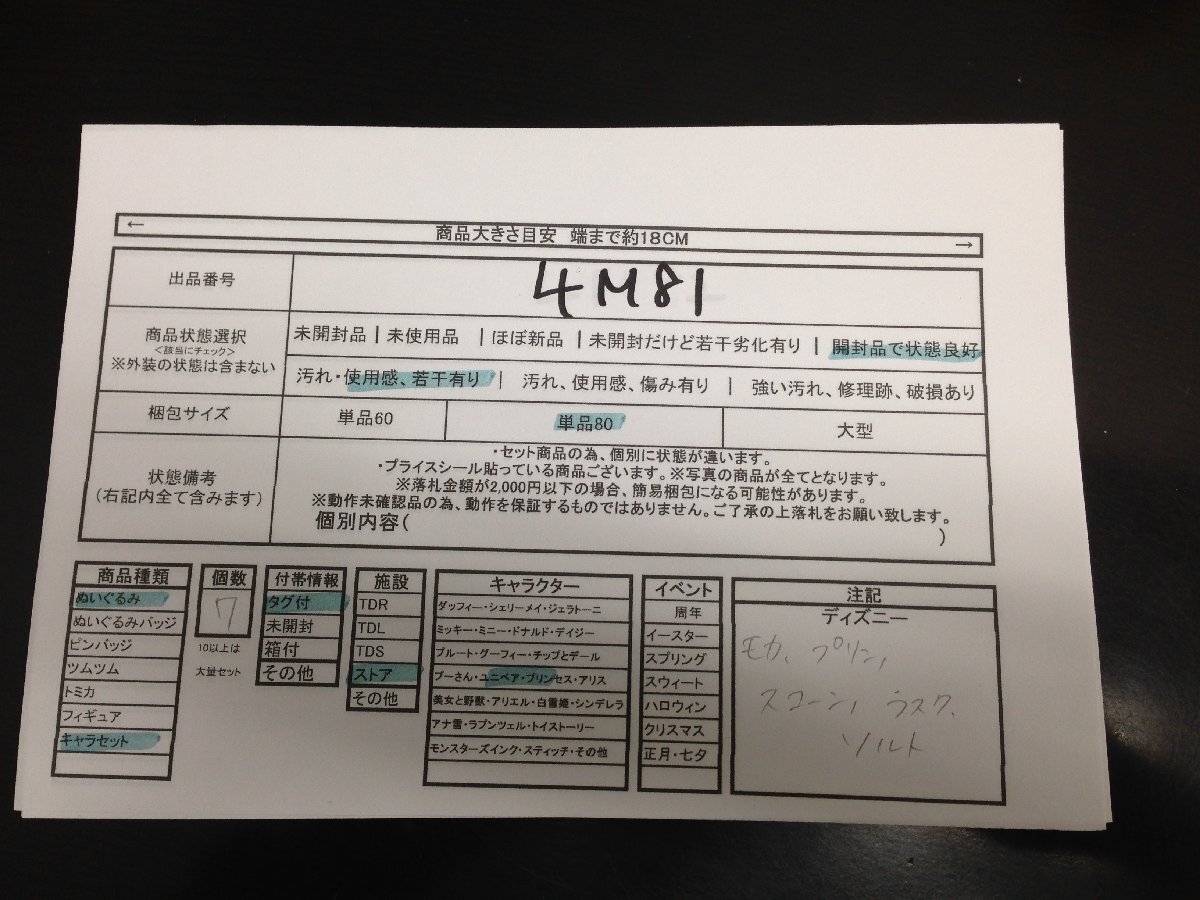 ← 商品大きさ目安 端まで約18CM →
出品番号 4M81
商品状態選択
<該当にチェック>
※外装の状態は含まない
未開封品 | 未使用品 | ほぼ新品 | 未開封だけど若干劣化有り | 開封品で状態良好
汚れ・使用感、若干有り | 汚れ、使用感、傷み有り | 強い汚れ、修理跡、破損あり
梱包サイズ 単品60 単品80 大型
状態備考
(右記内全て含みます)
・セット商品の為、個別に状態が違います。
・プライスシール貼っている商品ございます。※写真の商品が全てとなります。
※落札金額が2,000円以下の場合、簡易梱包になる可能性があります。
※動作未確認品の為、動作を保証するものではありません。ご了承の上落札をお願い致します。
個別内容( )
商品種類
ぬいぐるみ
ぬいぐるみバッジ
ピンバッジ
ツムツム
トミカ
フィギュア
キャラセット
個数
7
10以上は
大量セット
付帯情報
タグ付
未開封
箱付
その他
施設
TDR
TDL
TDS
ストア
その他
キャラクター
ダッフィー・シェリーメイ・ジェラトーニ
ミッキー・ミニー・ドナルド・デイジー
プルート・グーフィー・チップとデール
プーさん・ユニベア・プリンセス・アリス
美女と野獣・アリエル・白雪姫・シンデレラ
アナ雪・ラプンツェル・トイストーリー
モンスターズインク・スティッチ・その他
イベント
周年
イースター
スプリング
スウィート
ハロウィン
クリスマス
正月・七夕
注記
ディズニー
モカ、プリン、
スコーン、ラスク、
ソルト